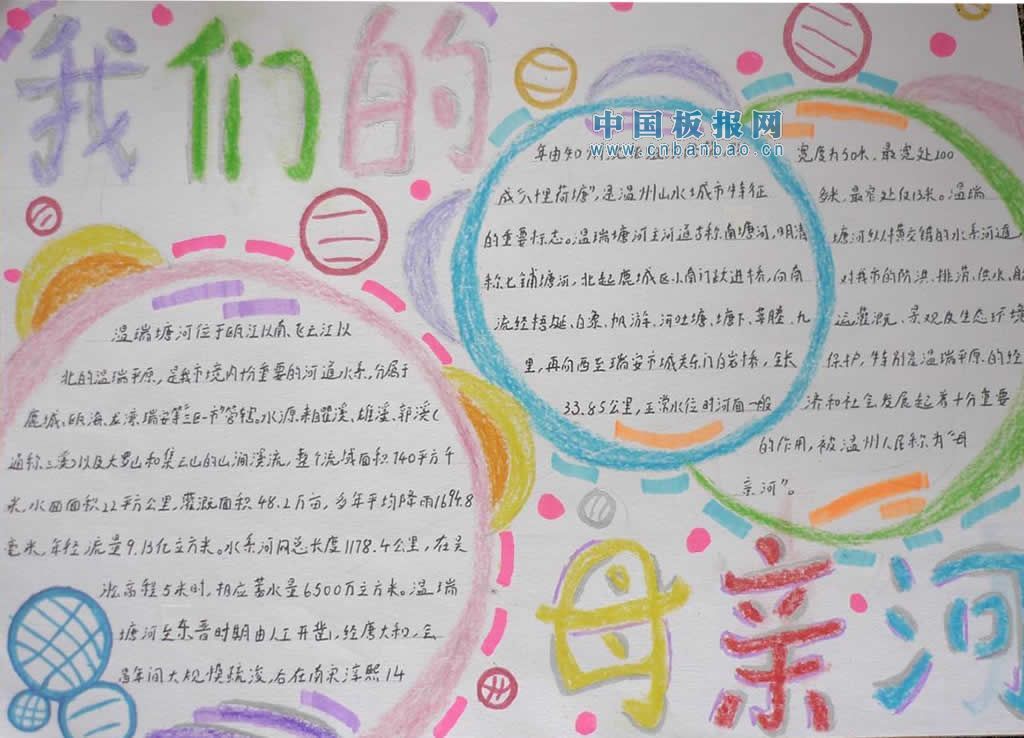 我们的
温瑞塘河位于瓯江以南、飞云江以
北的温瑞平原,是我市境内份重要的河道水系,分属于
鹿城、瓯海、龙湾、瑞安等三区一市管辖。水源来自瞿溪、雄溪、郭溪(
通称三溪)以及大罗山和集云山的山涧溪流,整个流域面积740平方千
米,水面面积22平方公里,灌溉面积48.2万亩,多年平均降雨1694.8
毫米,年径流量9.13亿立方米。水系河网总长度1178.4公里,在吴
淞高程5米时,相应蓄水量6500万立方米。温瑞
塘河在东晋时期由人工开凿,经唐大和,会
昌年间大规模疏浚,右在南宋淳熙14
中国板报网
www.cnbanbao.cn
年由40
成"八十里荷塘",是温州山水城市特征
的重要标志。温瑞塘河主河道古称南塘河,明清
称七铺塘河,北起鹿城区小南门跃进桥,向南
流经梧埏、白象、帆游、河口塘、塘下、莘塍、九
里,再向西至瑞安市城关东门白岩桥,全长
33.85公里,正常水位时河面一般
宽度为50米,最宽处200
多米,最窄处仅13米。温瑞
塘河纵横交错的水系河道
对我市的防洪、排涝、供水、航
运灌溉、景观及生态环境
保护,特别是温瑞平原的经
济和社会发展起着十分重要
的作用,被温州人民称为"母
亲河"。
母亲河